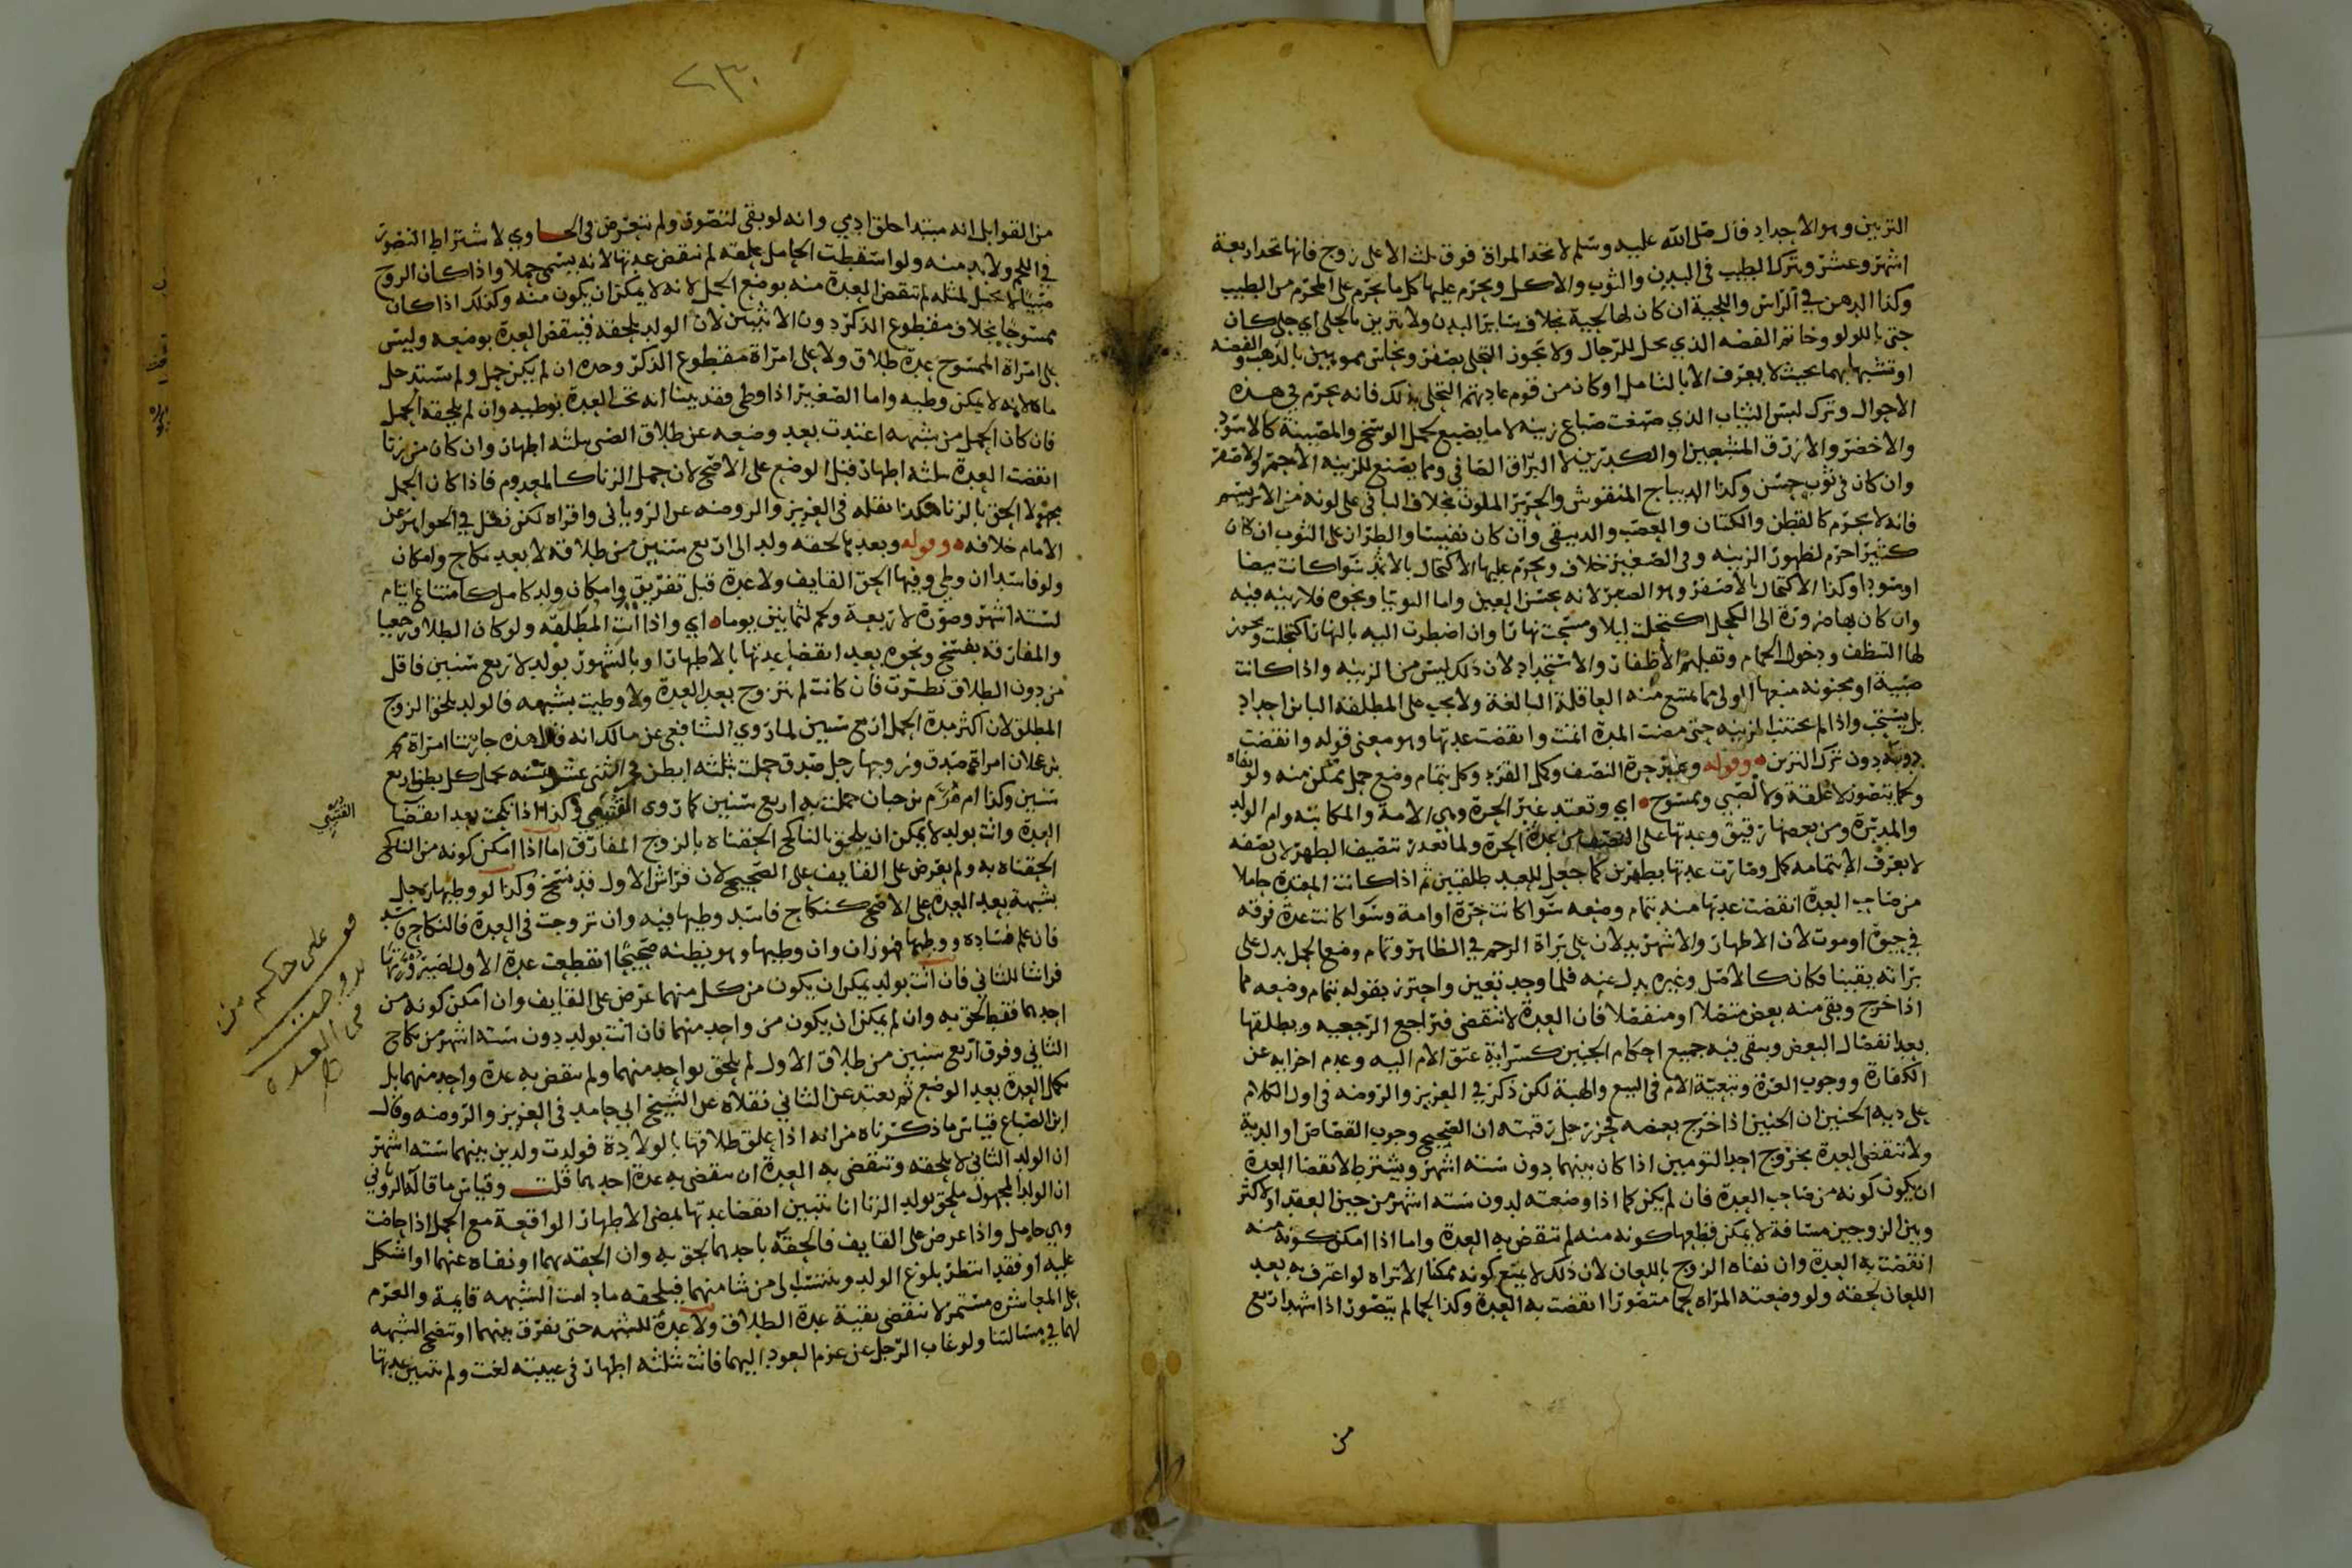 التزيين وهو الاحداد قال صلى الله عليه وسلم لا تحد المراة فوق ثلث الا على زوج فانها تحد اربعة
اشهر وعشر وترك الطيب في البدن والثوب والاكل ويحرم عليها كل ما يحرم على المحرم من الطيب
وكذا الدهن في الراس واللحية ان كان لها لحية بخلاف ساير البدن ولا تتزين بالحلي اي حلي كان
حتى باللولو وخاتم الفضه الذي يحل للرجال ولا يجوز التحلي بصفر ونحاس مموهين بالذهب والفضه
او تشبها بهما بحيث لا يعرف الا بالتامل او كان من قوم عادتهم التحلي بذلك فانه يحرم في هذه
الاحوال وترك لبس الثياب الذي صبغت صباغ زينه لا ما يصبغ لحمل الوسخ والمصيبة كالاسود
والاخضر والازرق المشبعين او الكدرين لا البراق الصافي ومما يصبغ للزينه الاحمر والاصفر
وان كان في ثوب خشن وكذا الديباج المنقوش والحرير الملون بخلاف الباقي على لونه من الابريسم
فانه لا يحرم كالقطن والكتان والعصب والدبيقي وان كان نفيسا والطراز على الثوب ان كان
كثيرا حرم لظهور الزينه وفي الصغير خلاف ويحرم عليها الاكتحال بالاثمد سوا كانت بيضا
او سودا وكذا الاكتحال بالاصفر وهو الصبر لانه يحسن العين واما التوتيا ونحوه فلا زينه فيه
وان كان بها ضرورة الى الكحل اكتحلت ليلا ومسحت نهارا وان اضطرت اليه بالنهار اكتحلت ويجوز
لها التنظف ودخول الحمام وتقليم الاظفار والاستحداد لان ذلك ليس من الزينه واذا كانت
صبية او مجنونه منعها الولي مما تمتنع منه العاقلة البالغة ولا يجب على المطلقة الباين احداد
بل يستحب واذا لم تجتنب الزينه حتى مضت المدة اثمت وانقضت عدتها وهو معنى قوله وانقضت
دونه دون ترك التزين وقوله وغير حرة النصف وكمل القرء وكل بتمام وضع حمل ممكن منه ولو نفاه
وكما بتصور لا علقة ولا لصبي وممسوح اي وتعتد غير الحرة وهي الامة والمكاتبه وام الولد
والمدبرة ومن بعضها رقيق وعدتها على النصف من عدة الحرة ولما تعذر تنصيف الطهر لان نصفه
لا يعرف الا بتمامه كمل وصارت عدتها بطهرين كما جعل للعبد طلقتين ثم اذا كانت المعتدة حاملا
من صاحب العدة انقضت عدتها منه بتمام وضعه سوا كانت حرة او امة وسوا كانت عدة فرقه
في حيوة او موت لان الاطهار والاشهر يدلان على براة الرحم في الظاهر وتمام وضع الحمل يدل على
براته يقينا فكان كالاصل وغيره بدل عنه فلما وجد تعين واحترز بقوله بتمام وضعه مما
اذا خرج وبقي منه بعض متصلا او منفصلا فان العدة لا تنقضي فيراجع الرجعيه ويطلقها
بعد انفصال البعض ويبقى فيه جميع احكام الجنين كسراية عتق الام اليه وعدم اجزايه عن
الكفارة ووجوب الغرة وتبعيته الام في البيع والهبة لكن ذكر في العزيز والروضه في اول الكلام
على دية الجنين ان الجنين اذا خرج بعضه فحز رجل رقبته ان الصحيح وجوب القصاص او الدية
ولا تنقضي العدة بخروج احد التومين اذا كان بينهما دون ستة اشهر ويشترط لانقضا العدة
ان يكون كونه من صاحب العدة فان لم يكن كما اذا وضعته لدون ستة اشهر من حين العقد او لاكثر
وبين الزوجين مسافة لا يمكن قطعها كونه منه لم تنقض به العدة واما اذا امكن كونه منه
انقضت به العدة وان نفاه الزوج باللعان لان ذلك لا يمنع كونه ممكنا الا تراه لو اعترف به بعد
اللعان لحقه ولو وضعته المراه لحما متصورا انقضت به العدة وكذا لحما لم يتصور اذا شهد اربع
من
٢٣٠
من القوابل انه مبتدا خلق ادمي وانه لو بقي لتصور ولم نتعرض في الحاوي لاشتراط التصور
في اللحم ولا بد منه ولو اسقطت الحامل علقه لم تنقض عدتها لانه يسمى حملا واذا كان الزوج
صبيا لا يحبل لمثله لم تنقض العدة منه بوضع الحمل لانه لا يمكن ان يكون منه وكذلك اذا كان
ممسوحا بخلاف مقطوع الذكر دون الانثيين لان الولد يلحقه فتنقضي العدة بوضعه وليس
على امراة الممسوح عدة طلاق ولا على امراة مقطوع الذكر وحده ان لم يكن حمل ولم تستدخل
ماه لانه لا يمكن وطيه واما الصغير اذا وطي فقد بينا انه تجب العدة بوطيه وان لم يلحقه الحمل
فان كان الحمل من شبهه اعتدت بعد وضعه عن طلاق الصبي بثلثه اطهار وان كان من زنا
انقضت العدة بثلثه اطهار قبل الوضع على الاصح لان حمل الزنا كالمعدوم فاذا كان الحمل
مجهولا الحق بالزنا هكذا نقله في العزيز والروضه عن الروياني واقراه لكن نقل في الجواهر عن
الامام خلافه وقوله وبعدها لحقه ولد الى اربع سنين من طلاقه لا بعد نكاح وامكان
ولو فاسدا ان وطي وفيها الحق القايف ولا عدة قبل تفريق وامكان ولد كامل
لستة اشهر وصورة لاربعة ولحم لثمانين يوما اي واذا اتت المطلقه ولو كان الطلاق رجعيا
والمفارقه بفسخ ونحوه بعد انقضا عدتها بالاطهار او بالشهور بولد لاربع سنين فاقل
من دون الطلاق نظرت فان كانت لم تتزوج بعد العدة ولا وطيت بشبهه فالولد يلحق الزوج
المطلق لان اكثر مدة الحمل اربع سنين لما روي الشافعي عن مالك انه قال هذه جارتنا امراة محمد
بن عجلان امراة صدق وزوجها رجل صدق حملت ثلثه ابطن في اثنى عشر سنه تحمل كل بطن اربع
سنين وكذا ام هرم بن حبان حملت به اربع سنين كما روى القتيبي وكذا اذا نكحت بعد انقضا
العدة واتت بولد لا يمكن ان يلحق بالناكح الحقناه بالزوج المفارق اما اذا امكن كونه من الناكح
الحقناه به ولم يعرض على القايف على الصحيح لان فراش الاول قد نسخ وكذا لو وطيها رجل
بشبهة بعد العدة على الاصح كنكاح فاسد وطيها فيه وان تزوجت في العدة فالنكاح فاسد
فان علم فساده ووطيها فهو زان وان وطيها وهو يظنه صحيحا انقطعت عدة الاول لصيرورتها
فراشا للثاني فان اتت بولد يمكن ان يكون من كل منهما عرض على القايف وان امكن كونه من
احدهما فقط لحق به وان لم يمكن ان يكون من واحد منهما فان اتت بولد دون ستة اشهر من نكاح
الثاني وفوق اربع سنين من طلاق الاول لم يلحق بواحد منهما ولم تنقض به عدة واحد منهما بل
تكمل العدة بعد الوضع ثم تعتد عن الثاني نقلاه عن الشيخ ابي حامد في العزيز والروضه وقال
ابن الصباغ قياس ما ذكرناه من انه اذا علق طلاقها بالولادة فولدت ولدين بينهما ستة اشهر
ان الولد الثاني لا يلحقه وتنقضي به العدة ان تنقضي به عدة احدهما قلت وقياس ما قاله الروياني
ان الولد المجهول ملحق بولد الزنا انا نتبين انقضا عدتها بمضي الاطهار الواقعة مع الحمل اذا حاضت
وهي حامل واذا عرض على القايف فالحقه باحدهما لحق به وان الحقه بهما او نفاه عنهما او اشكل
عليه او فقد انتظر بلوغ الولد وينتسب الى من شا منهما فيلحقه ما دامت الشبهه قايمة والعزم
على المعاشره مستمر لا تنقضي بقية عدة الطلاق ولا عدة للشبهه حتى يفرق بينهما او تتضح الشبهه
لهما في مسالتنا ولو غاب الرجل عن عزم العود اليهما فاتت ثلثه اطهار في غيبته لغت ولم تتبين عدتها
القتيبي
على حاكم من
تزوجت
في العده